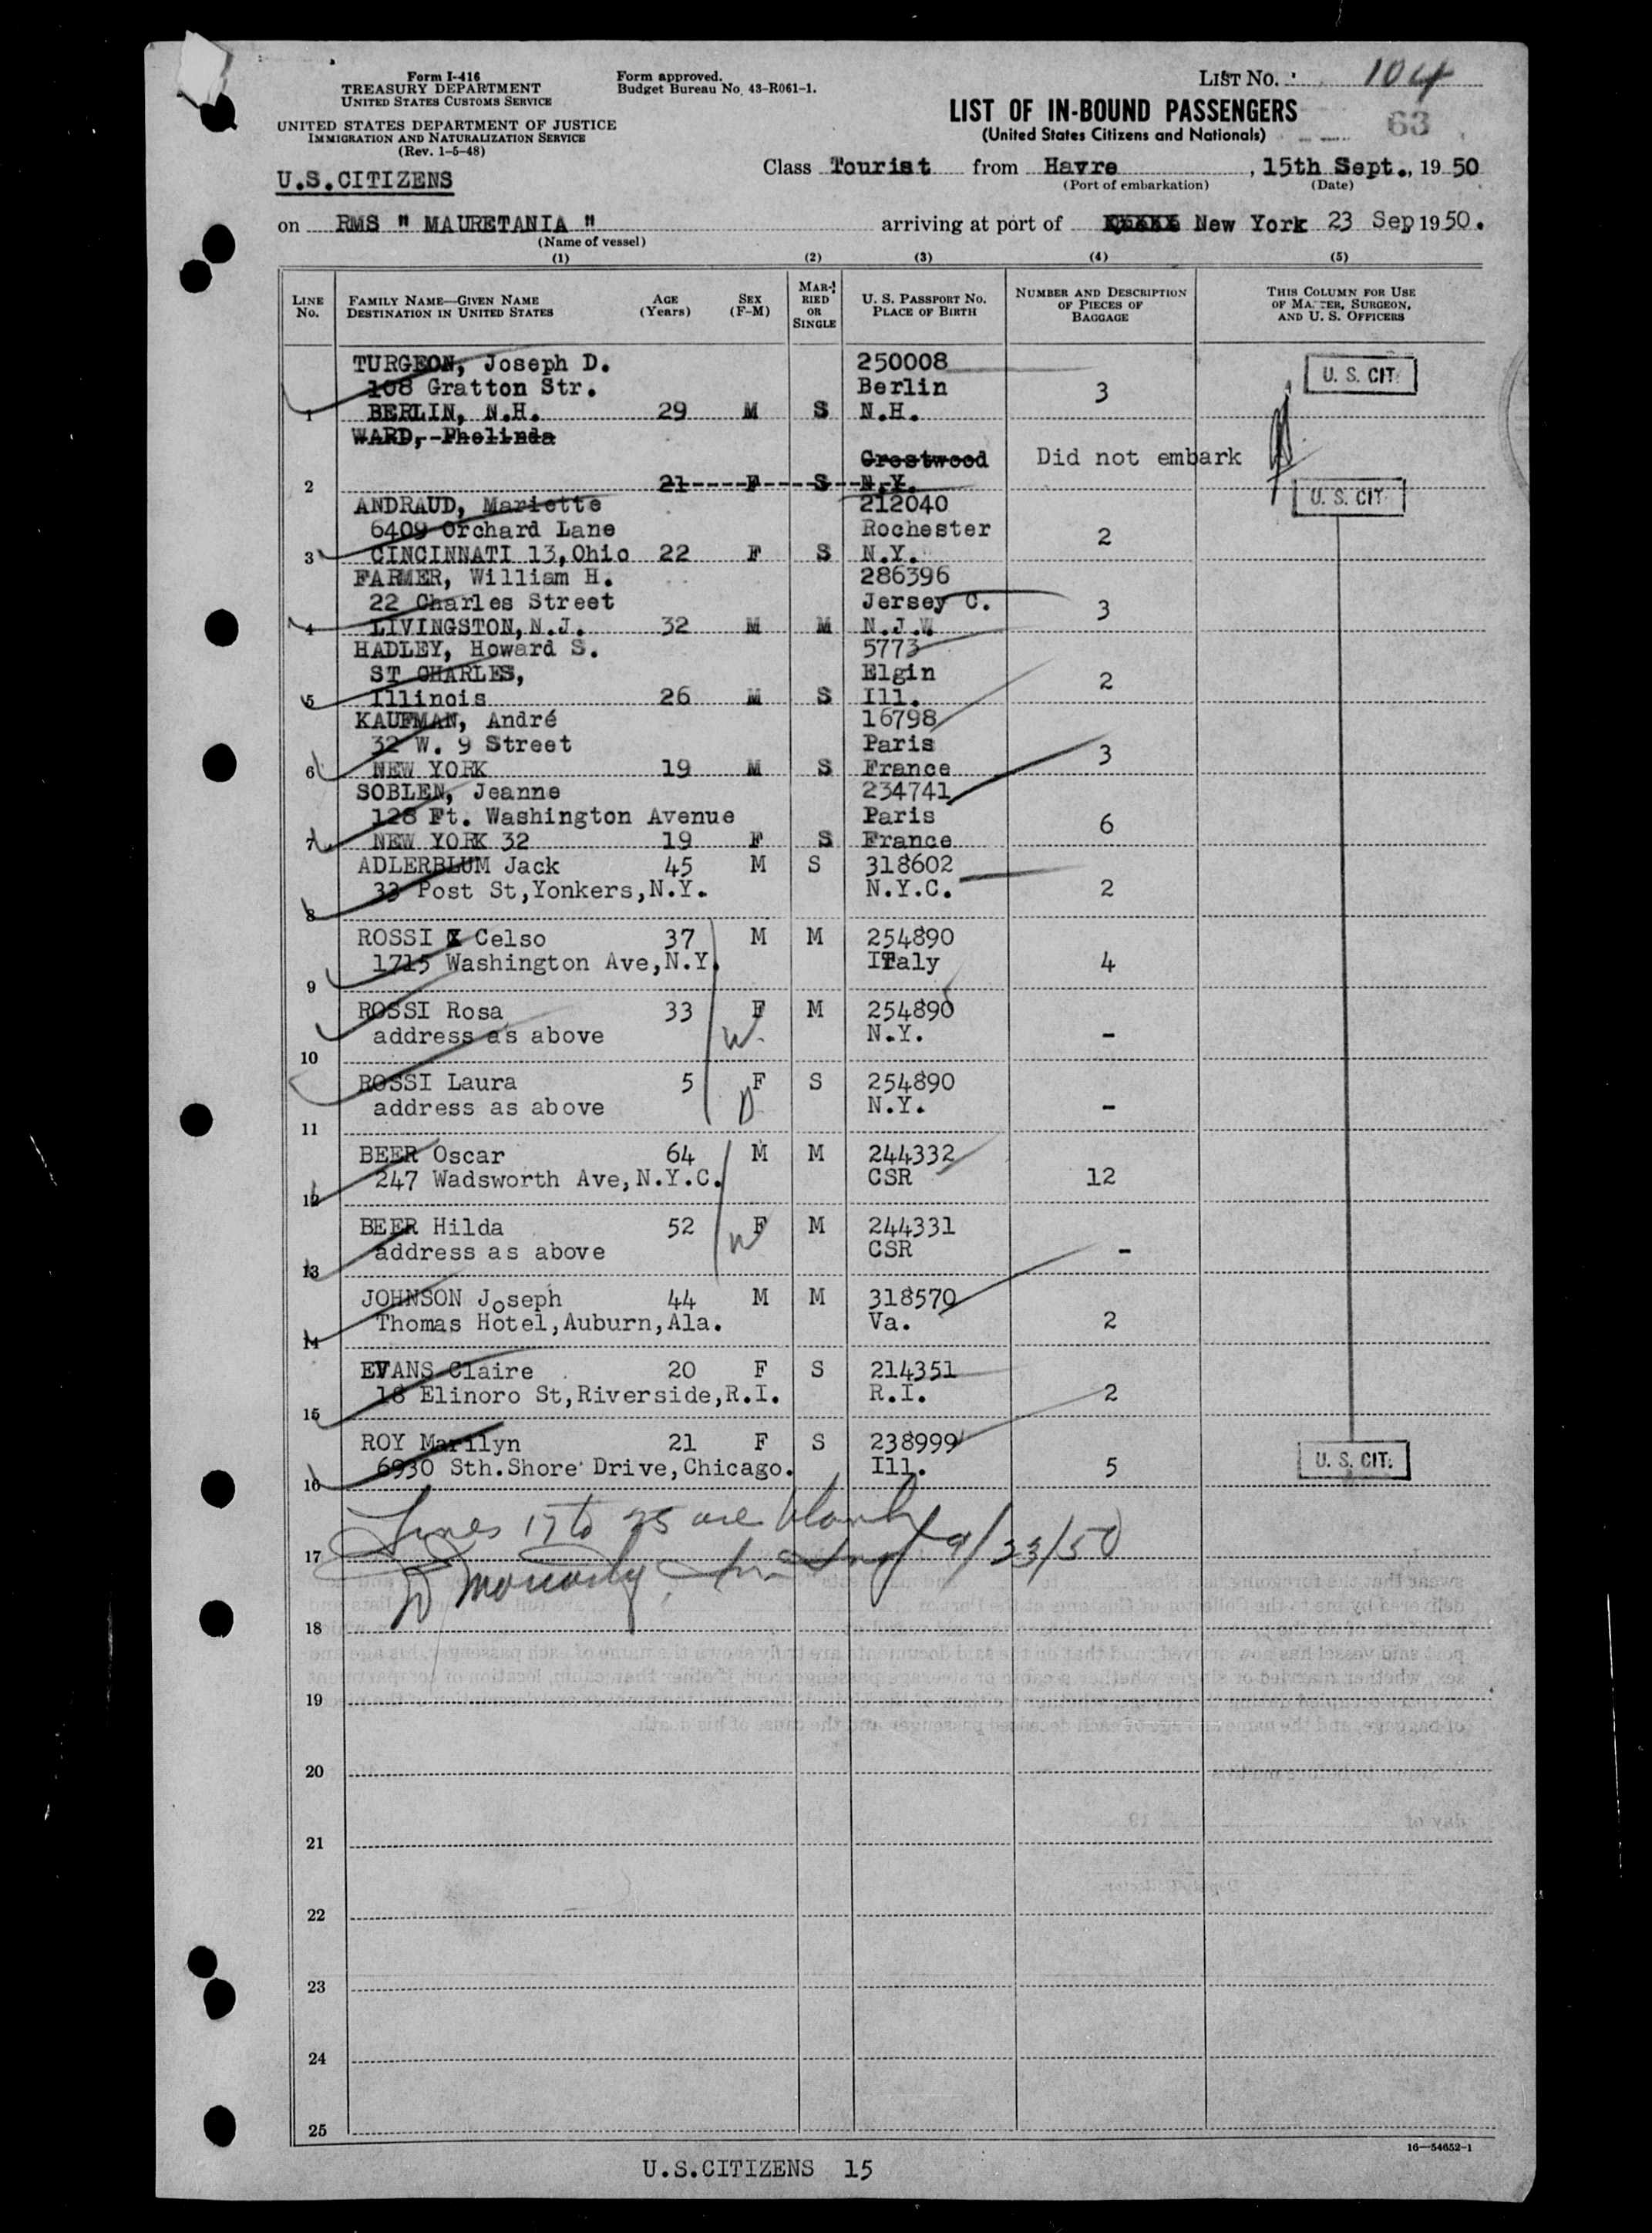 Form I-416
TREASURY DEPARTMENT
UNITED STATES CUSTOMS SERVICE
UNITED STATES DEPARTMENT OF JUSTICE
IMMIGRATION AND NATURALIZATION SERVICE
(Rev. 1-5-48)
Form approved.
Budget Bureau No. 43-R061-1.
LIST NO. 104
LIST OF IN-BOUND PASSENGERS
(United States Citizens and Nationals)
63
U.S.CITIZENS
Class Tourist from Havre, 15th Sept., 1950
(Port of embarkation) (Date)
on RMS " MAURETANIA " arriving at port of New York 23 Sep 1950.
(Name of vessel)
(1) (2) (3) (4) (5)
LINE No.
FAMILY NAME—GIVEN NAME
DESTINATION IN UNITED STATES
AGE (Years)
SEX (F-M)
MARRIED OR SINGLE
U. S. PASSPORT NO.
PLACE OF BIRTH
NUMBER AND DESCRIPTION OF PIECES OF BAGGAGE
THIS COLUMN FOR USE OF MASTER, SURGEON, AND U. S. OFFICERS
TURGEON, Joseph D. 250008
108 Gratton Str. Berlin 3 U. S. CIT.
1 BERLIN, N.H. 29 M S N.H.
WARD,-Phelinda
Crestwood Did not embark
2 21 F S N.Y.
ANDRAUD, Mariette 212040 U. S. CIT.
6409 Orchard Lane Rochester 2
3 CINCINNATI 13,Ohio 22 F S N.Y.
FARMER, William H. 286396
22 Charles Street Jersey C. 3
4 LIVINGSTON,N.J. 32 M M N.J.
HADLEY, Howard S. 5773
ST CHARLES, Elgin 2
5 Illinois 26 M S Ill.
KAUFMAN, André 16798
32 W. 9 Street Paris 3
6 NEW YORK 19 M S France
SOBLEN, Jeanne 234741
128 Ft. Washington Avenue Paris 6
7 NEW YORK 32 19 F S France
ADLERBLUM Jack 45 M S 318602
33 Post St,Yonkers,N.Y. N.Y.C. 2
8
ROSSI Celso 37 M M 254890
1715 Washington Ave,N.Y. ITaly 4
9
ROSSI Rosa 33 F M 254890
address as above W. N.Y. -
10
ROSSI Laura 5 F S 254890
address as above D N.Y. -
11
BEER Oscar 64 M M 244332
247 Wadsworth Ave,N.Y.C. CSR 12
12
BEER Hilda 52 F M 244331
address as above W CSR -
13
JOHNSON Joseph 44 M M 318570
Thomas Hotel,Auburn,Ala. Va. 2
14
EVANS Claire 20 F S 214351
18 Elinoro St,Riverside,R.I. R.I. 2
15
ROY Marilyn 21 F S 238999
6930 Sth.Shore Drive,Chicago. Ill. 5 U. S. CIT.
16
Lines 17 to 25 are blank
17 9/23/50
18
19
20
21
22
23
24
25
16—54652-1
U.S.CITIZENS 15